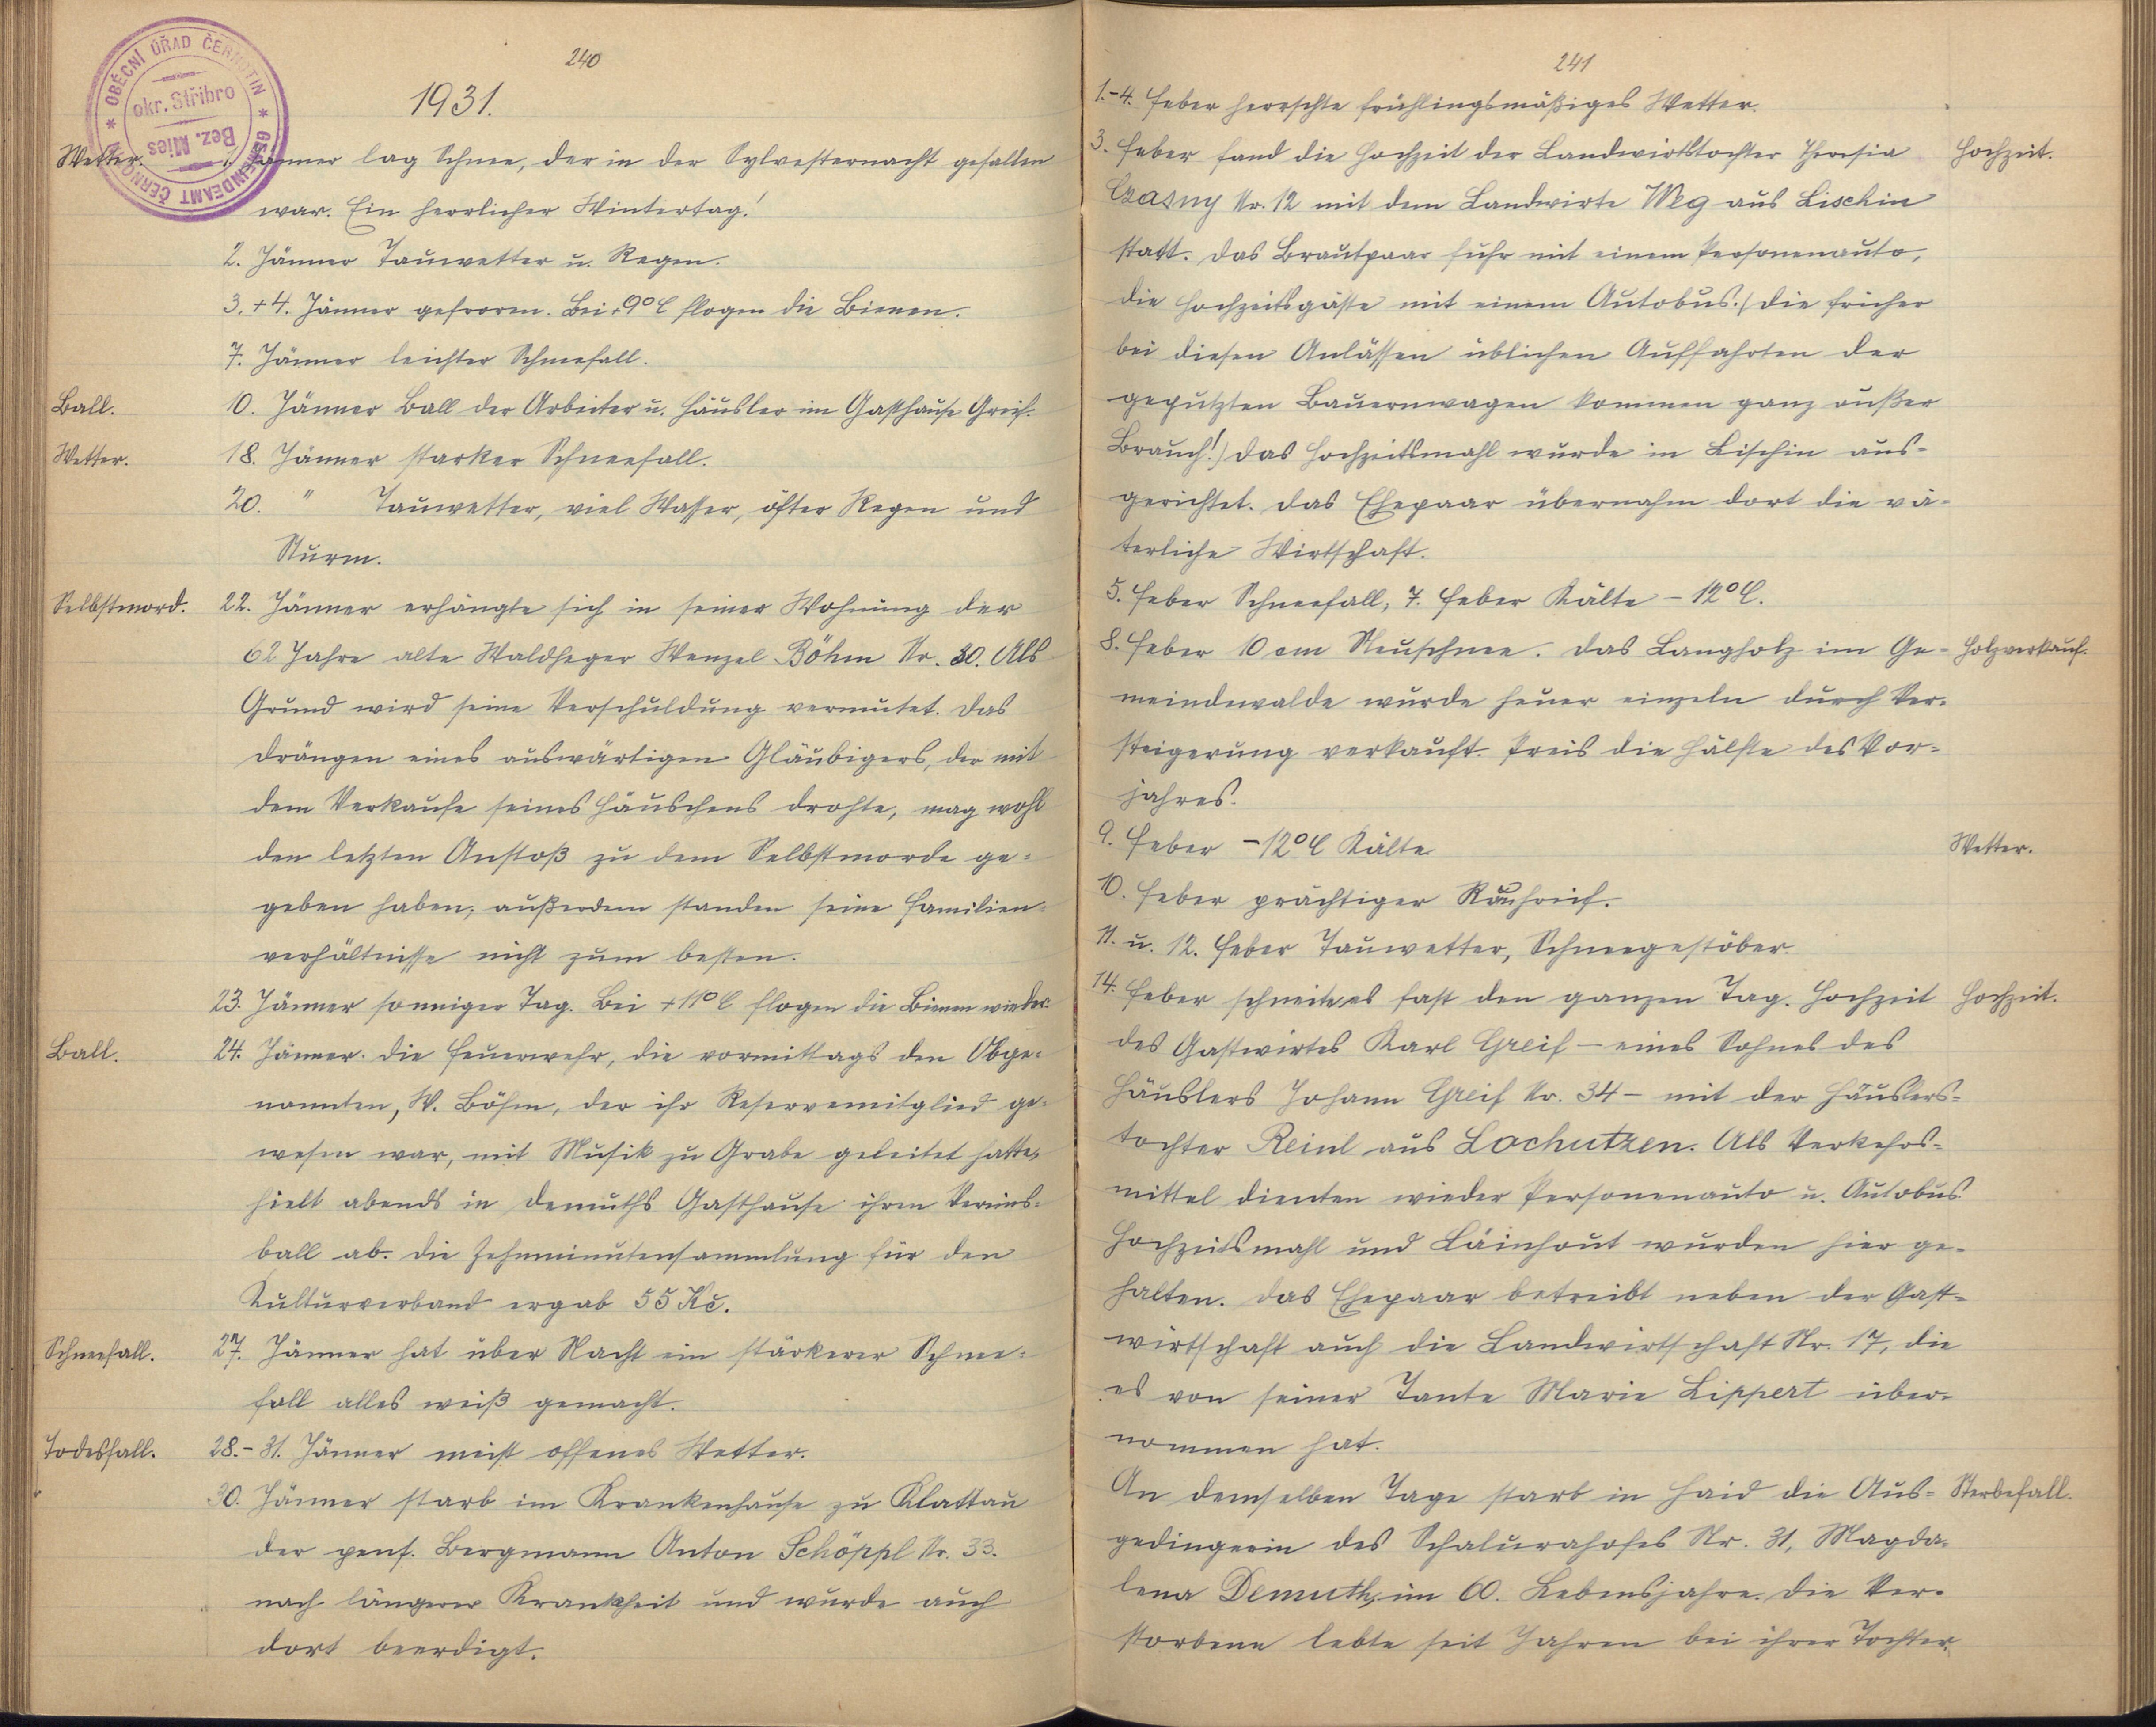 240
1931.
OBECNÍ ÚŘAD ČERNOTIN * GEMEINDEAMT ČERNOTIN *
okr. Stříbro
Bez. Mies
Wetter. 1. Jänner lag Schnee, der in der Sylvesternacht gefallen
war. Ein herrlicher Wintertag!
2. Jänner Tauwetter u. Regen.
3. + 4. Jänner gefroren. Bei +9°C flogen die Bienen.
7. Jänner leichter Schneefall.
Ball. 10. Jänner Ball der Arbeiter u. Häusler im Gasthause Greif.
Wetter. 18. Jänner starker Schneefall.
20. " Tauwetter, viel Wasser, öfter Regen und
Sturm.
Selbstmord. 22. Jänner erhängte sich in seiner Wohnung der
62 Jahre alte Waldheger Wenzel Böhm Nr. 30. Als
Grund wird seine Verschuldung vermutet. Das
Drängen eines auswärtigen Gläubigers, der mit
dem Verkaufe seines Häuschens drohte, mag wohl
den letzten Anstoß zu dem Selbstmorde ge-
geben haben; außerdem standen seine Familien-
verhältnisse nicht zum besten.
23. Jänner sonniger Tag. Bei +11°C flogen die Bienen wieder.
Ball. 24. Jänner. Die Feuerwehr, die vormittags den Obge-
nannten, W. Böhm, der ihr Reservemitglied ge-
wesen war, mit Musik zu Grabe geleitet hatte,
hielt abends in Demuths Gasthause ihren Vereins-
ball ab. Die Zehnminutensammlung für den
Kulturverband ergab 55 Kč.
Schneefall. 27. Jänner hat über Nacht ein stärkerer Schnee-
fall alles weiß gemacht.
Todesfall. 28.-31. Jänner meist offenes Wetter.
30. Jänner starb im Krankenhause zu Klattau
der pens. Bergmann Anton Schöppl Nr. 33.
nach längerer Krankheit und wurde auch
dort beerdigt.
241
1.-4. Feber herrschte frühlingsmäßiges Wetter.
3. Feber fand die Hochzeit der Landwirtstochter Theresia Hochzeit.
Czasny Nr. 12 mit dem Landwirte Weg aus Lischin
statt. Das Brautpaar fuhr mit einem Personenauto,
die Hochzeitsgäste mit einem Autobus. (Die früher
bei diesen Anlässen üblichen Auffahrten der
geputzten Bauernwagen kommen ganz außer
Brauch!) Das Hochzeitsmahl wurde in Lischin aus-
gerichtet. Das Ehepaar übernahm dort die vä-
terliche Wirtschaft.
5. Feber Schneefall, 7. Feber Kälte -12°C.
8. Feber 10 cm Neuschnee. Das Langholz im Ge- Holzverkauf.
meindewalde wurde heuer einzeln durch Ver-
steigerung verkauft. Preis die Hälfte des Vor-
jahres.
9. Feber -12°C Kälte Wetter.
10. Feber prächtiger Rauhreif.
11. u. 12. Feber Tauwetter, Schneegestöber.
14. Feber schneite es fast den ganzen Tag. Hochzeit Hochzeit.
des Gastwirtes Karl Greif - eines Sohnes des
Häuslers Johann Greif Nr. 34 - mit der Häuslers-
tochter Reinl aus Lochutzen. Als Verkehrs-
mittel dienten wieder Personenauto u. Autobus.
Hochzeitsmahl und Läinhout wurden hier ge-
halten. Das Ehepaar betreibt neben der Gast-
wirtschaft auch die Landwirtschaft Nr. 17, die
es von seiner Tante Marie Lippert über-
nommen hat.
An demselben Tage starb in Haid die Aus- Sterbefall.
gedingerin des Schalurahofes Nr. 31, Magda-
lena Demuth, im 60. Lebensjahre. Die Ver-
storbene lebte seit Jahren bei ihrer Tochter.